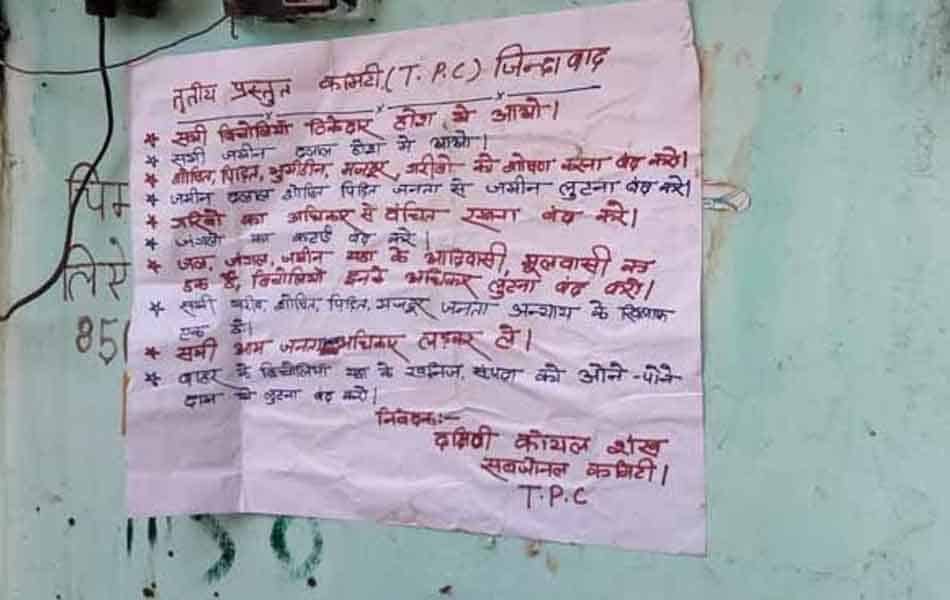 तृतीय प्रस्तुत कमिटी (T.P.C) जिन्दावाद
* सभी बिचौलियों ठिकेदार होश मे आओ।
* सभी जमीन दलाल होश मे आओ।
* शोषित, पिड़ित, भुमीहीन, मजदूर, गरीबो को शोषण करना बंद करो।
* जमीन दलाल शोषित पिड़ित जनता से जमीन लुटना बंद करो।
* गरिबो का अधिकार से वंचित रखना बंद करो।
* जंगलो का कटाई बंद करो।
* जल, जंगल, जमीन यहा के आदिवासी, मूलवासी का
हक है, बिचौलियो इनके अधिकार लुटना बंद करो।
* सभी गरीब, शोषित, पिड़ित, मजदूर जनता अन्याय के खिलाफ
एक हो।
* सभी आम जनता अधिकार लड़कर ले।
* बाहर के बिचौलिया यहा के खनिज, संपदा को औने-पौने
दाम मे लुटना बंद करो।
निवेदक:-
दक्षिणी कोयल शंख
सबजोनल कमिटी।
T.P.C
लिऐ
85